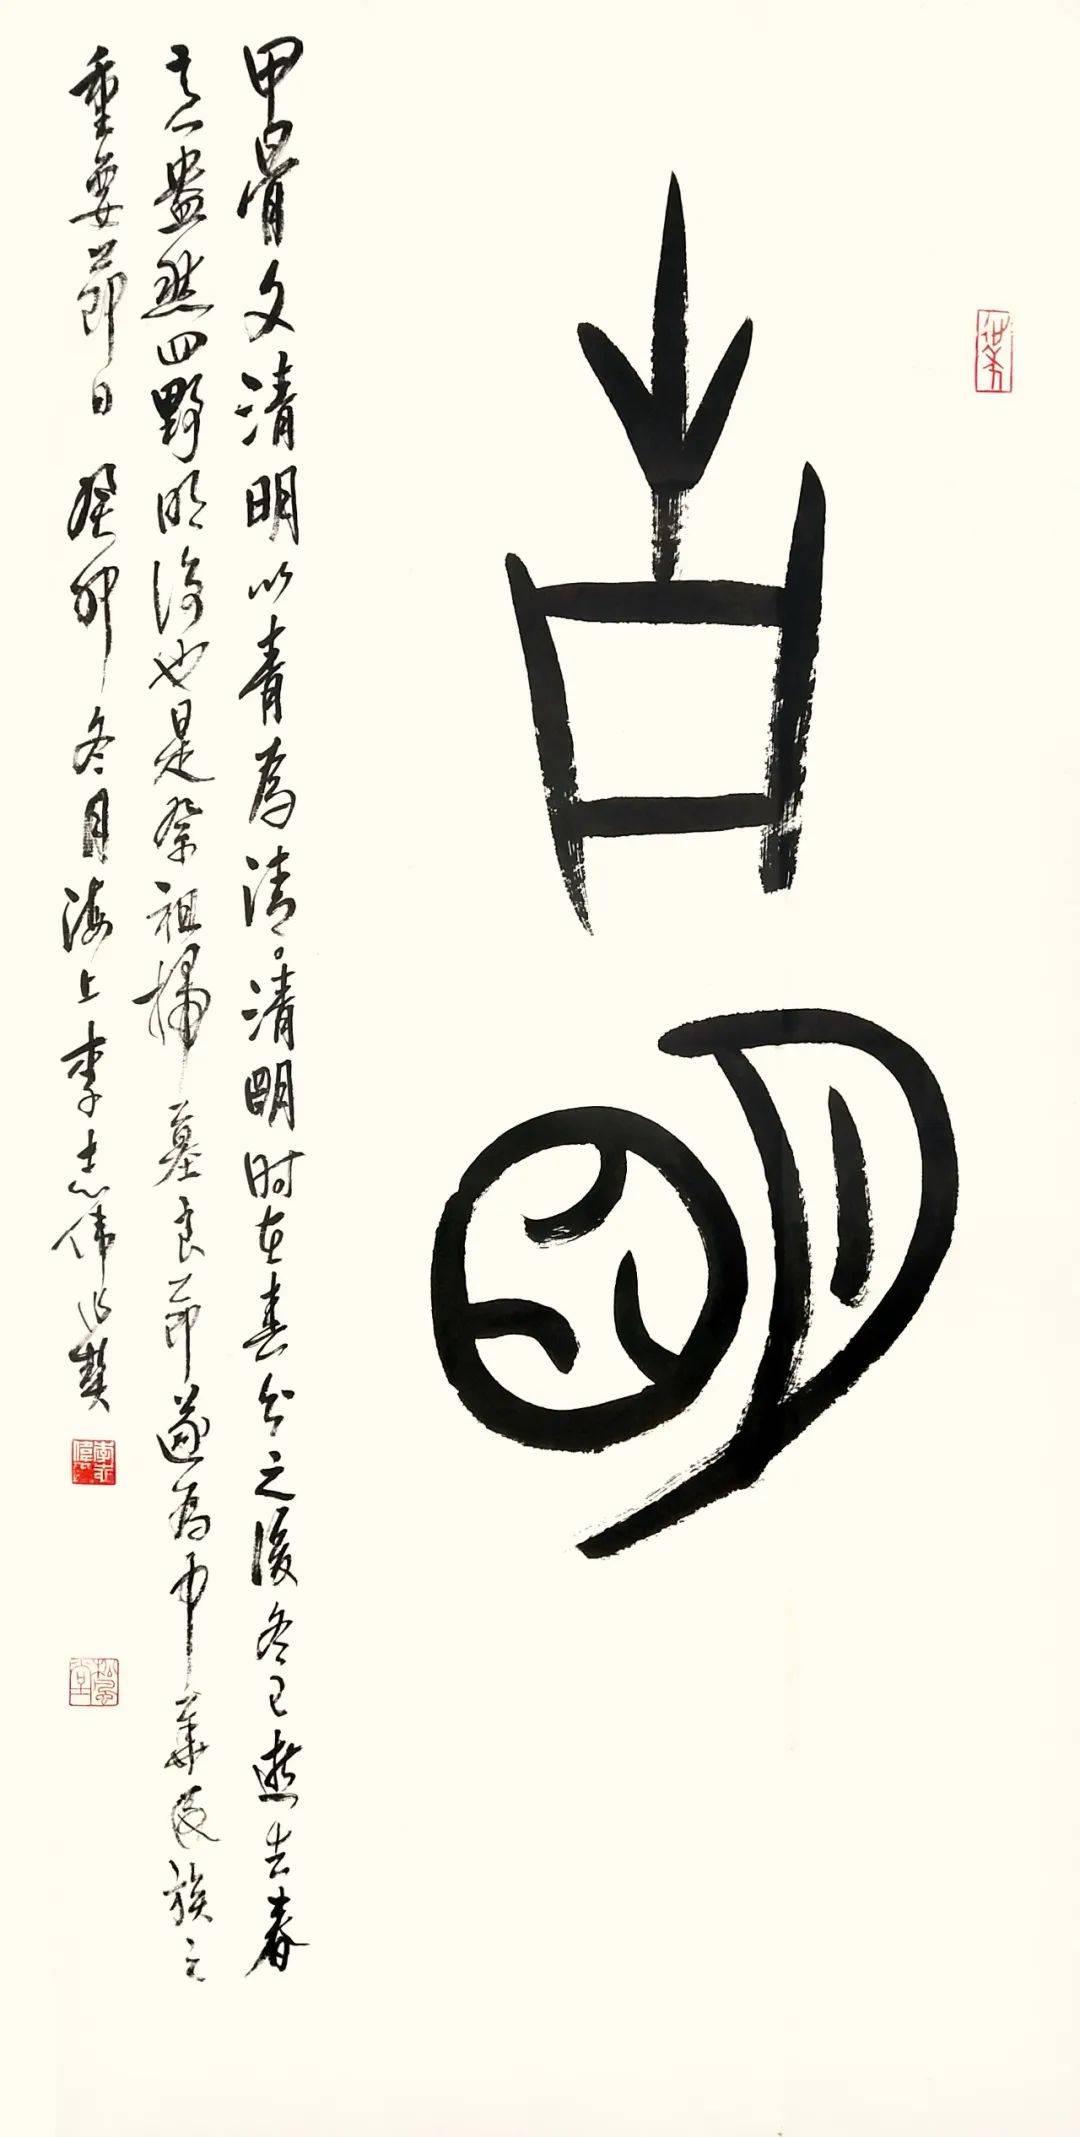 青
明
甲骨文清明以青為清。清明时在春分之後冬已逝去春
意盎然四野明淨也是祭祖掃墓良節遂為中華民族之
重要節日 癸卯冬月海上李志偉
李志偉